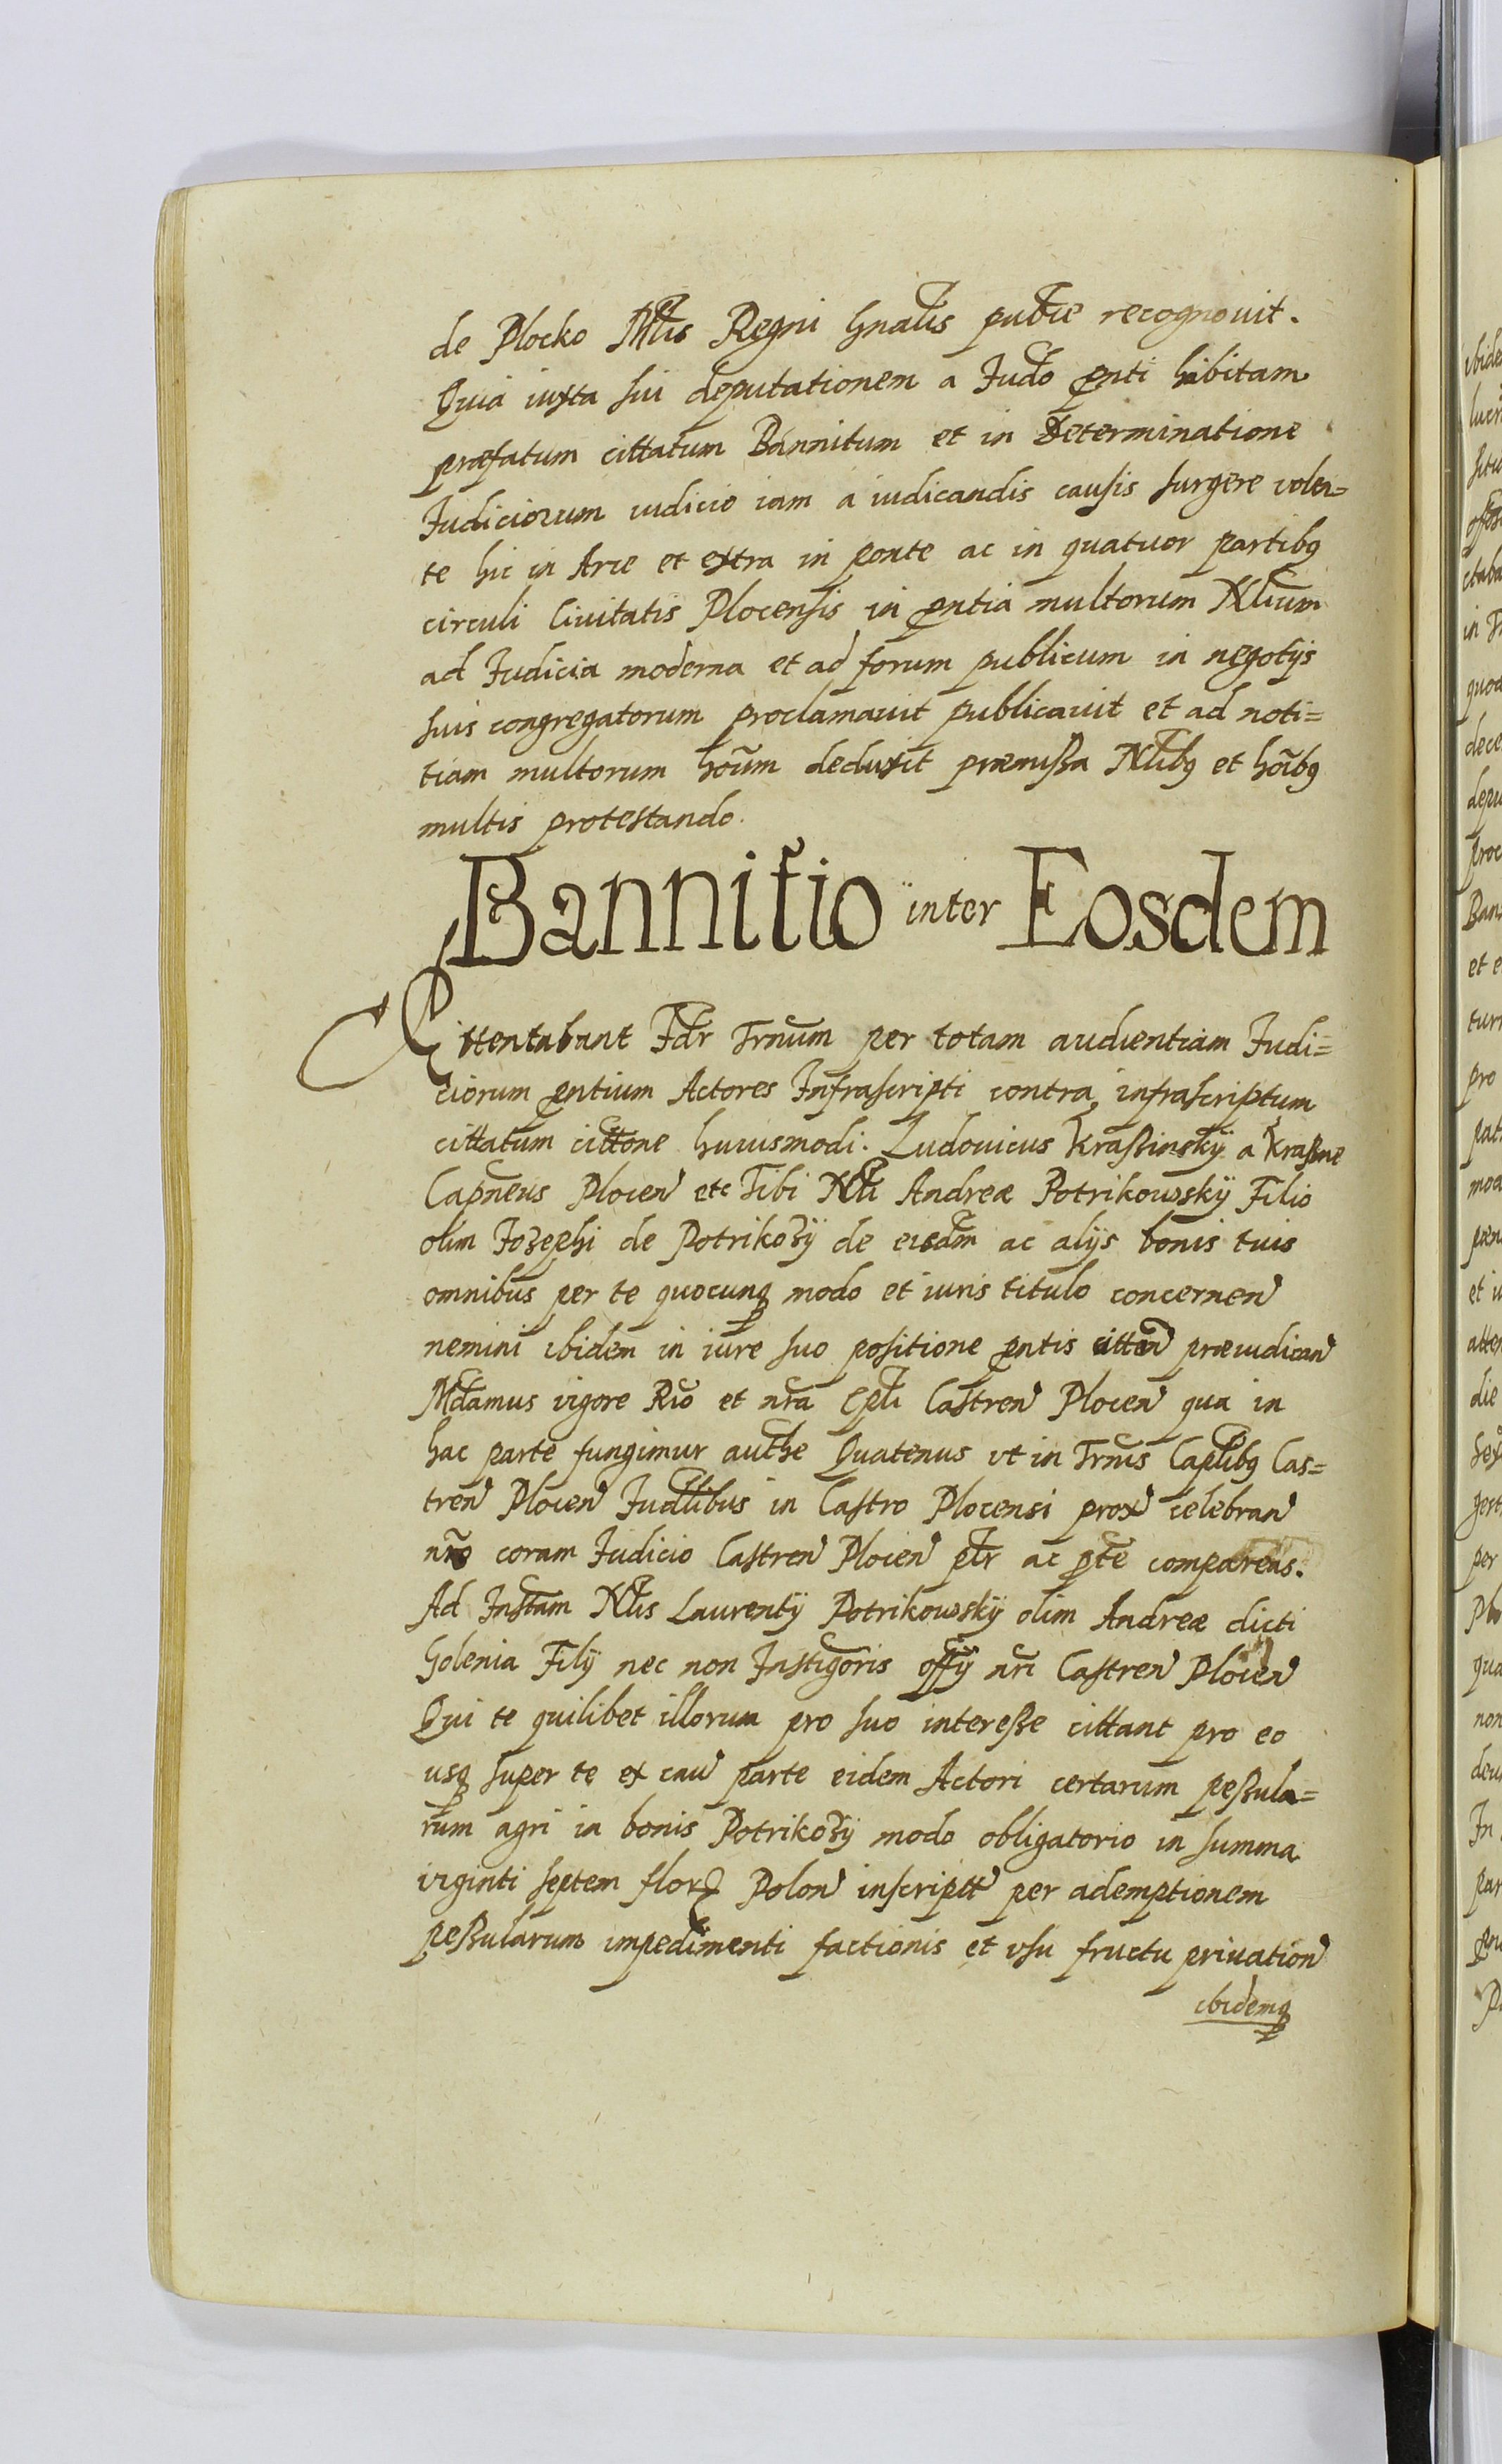 de Plocko Mtis Regni Gnalis publice recognouit.
Quia iuxta sui deputationem a Judo pnti habitam
præfatum cittatum Bannitum et in Determinatione
Judiciorum iudicio iam a iudicandis causis surgere volen=
te hic in Arce et extra in ponte ac in quatuor partibq
circuli Ciuitatis Plocensis in pntia multorum Nlium
ad Judicia moderna et ad forum publicum in negotÿs
suis congregatorum proclamauit publicauit et ad noti=
tiam multorum hoĩum deduxit præmißa Nlibq et hoĩbq
multis protestando.
Bannitio inter Eosdem
Attentabant Fdr Trnum per totam audientiam Judi=
ciorum pntium Actores Infrascripti contra infrascriptum
cittatum cittone huiusmodi. Ludouicus Kraßinskÿ a Kraßne
Capneus Plocen etc Tibi Nli Andreæ Potrikowskÿ Filio
olim Jozephi de Potrikozÿ de eisdm ac alÿs bonis tuis
omnibus per te quocunq modo et iuris titulo concernen
nemini ibidem in iure suo positione pntis citten præiudican
Mdamus vigore Rio et nra Cpli Castren Plocen qua in
hac parte fungimur authe Quatenus vt in Trnis Caplibq Cas=
tren Plocen Judllibus in Castro Plocensi prox celebran
nro coram Judicio Castren Plocen ptr ac pte compareas.
Ad Instam Nlis Laurentÿ Potrikowskÿ olim Andreæ dicti
Golenia Filÿ nec non Instigoris offÿ nri Castren Plocen
Qui te quilibet illorum pro suo intereße cittant pro eo
usq super te ex cau parte eidem Actori certarum peßula=
rum agri in bonis Potrikozÿ modo obligatorio in summa
viginti septem flor Polon inscriptt per ademptionem
peßularum impedimenti factionis et vsu fructu priuation
ibidemq